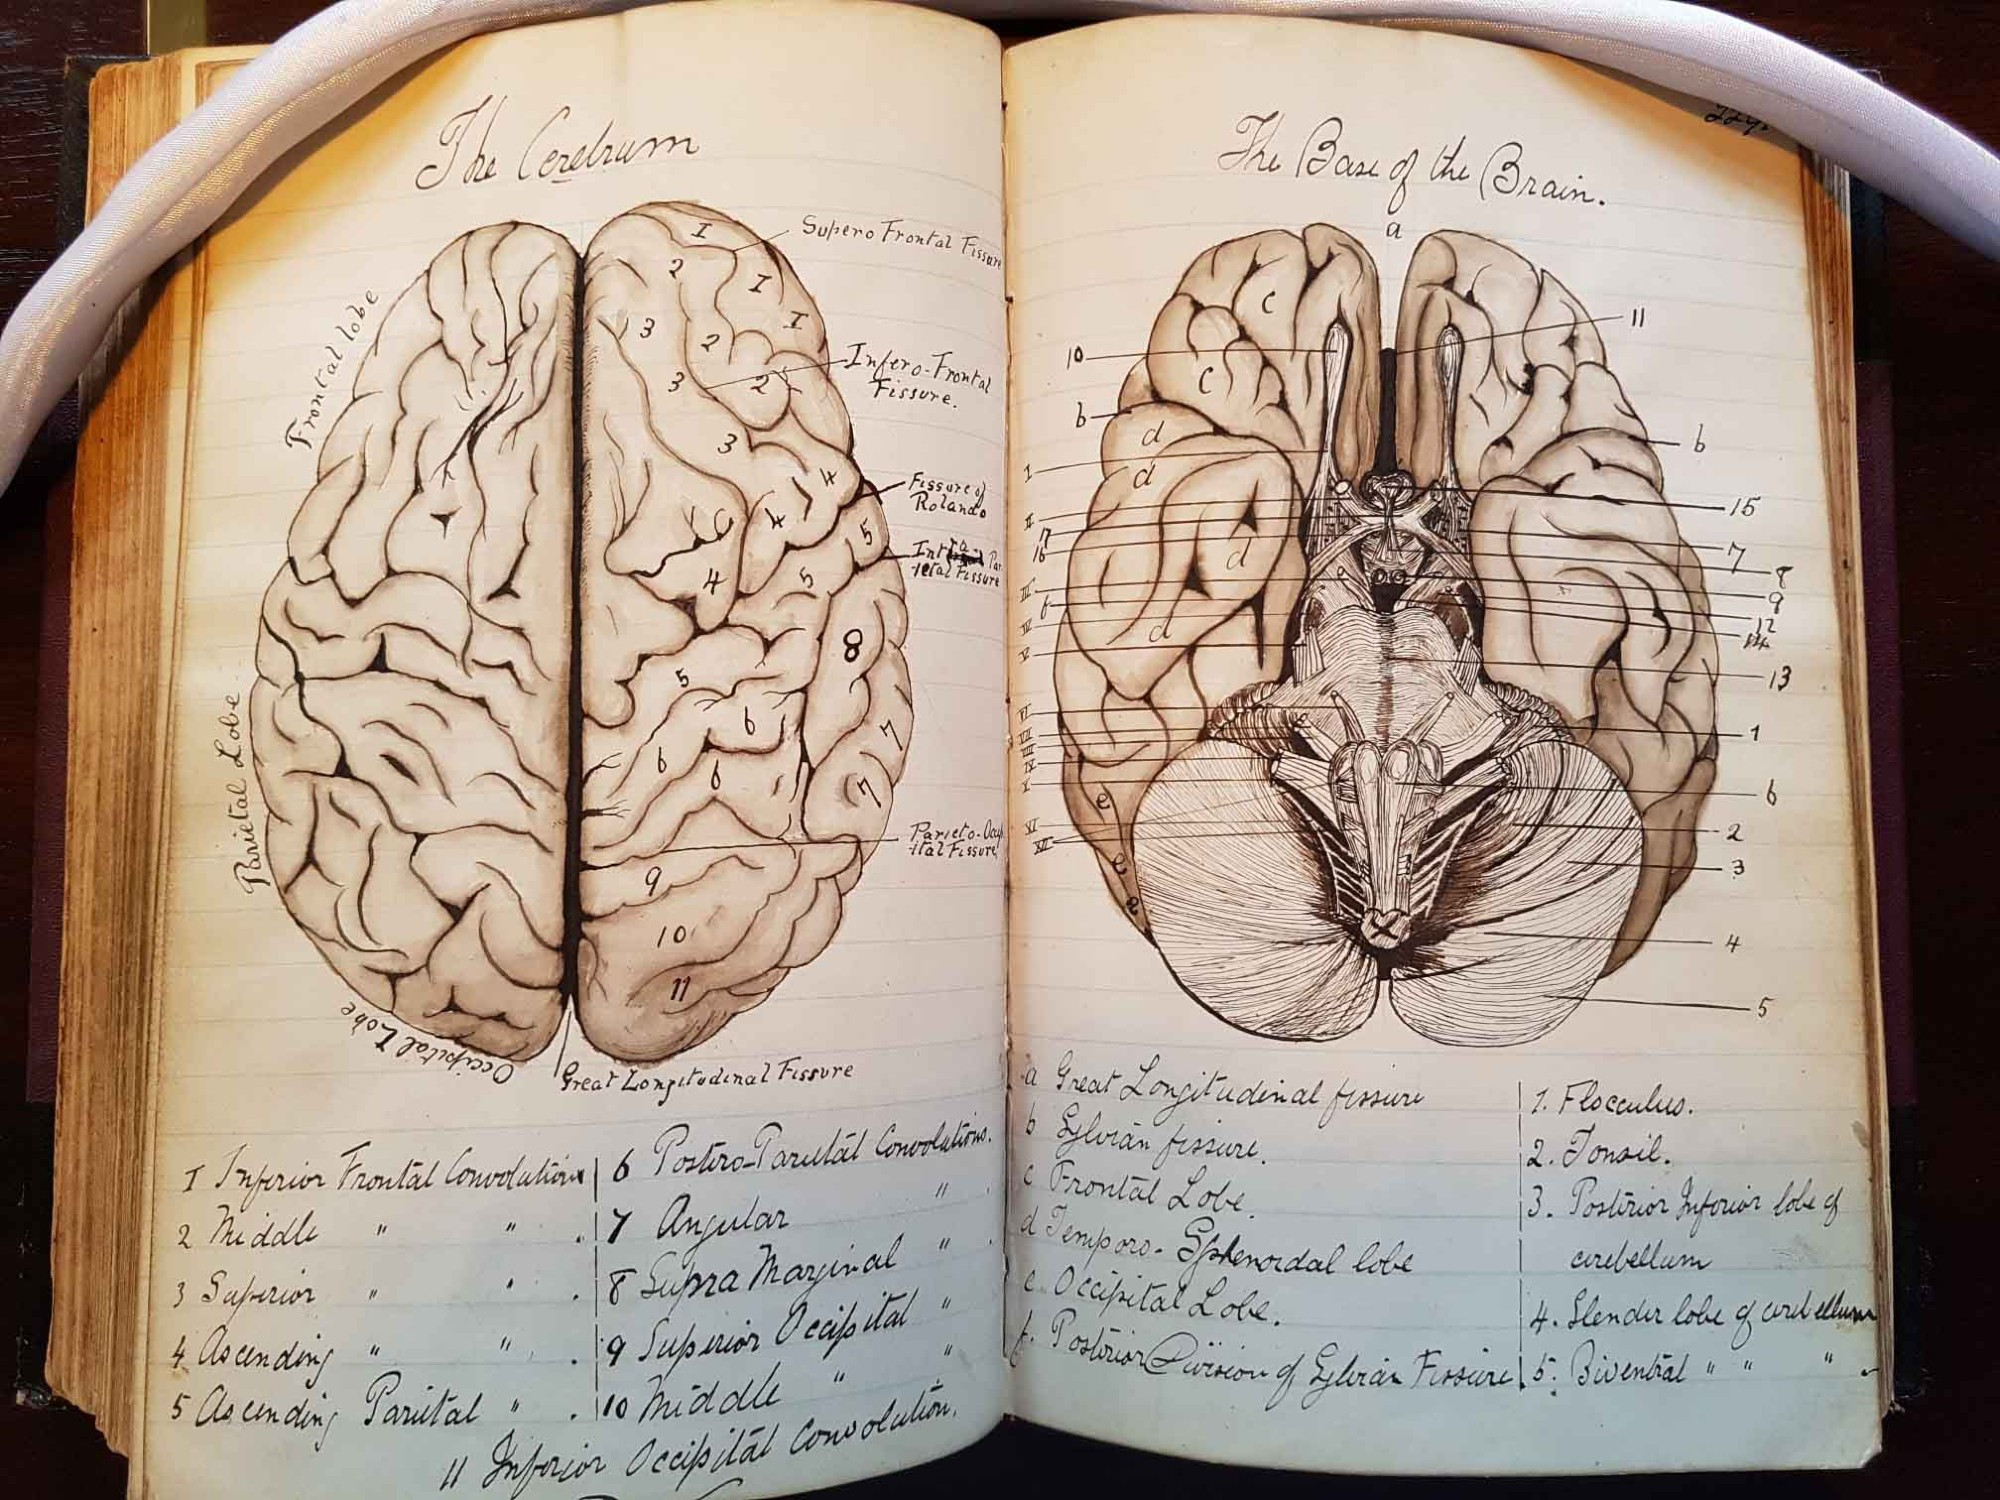 The Cerebrum
Supero Frontal Fissure
Frontal lobe
Infero-Frontal
Fissure.
Fissure of
Rolando
Parietal Lobe
-ietal Fissure
Parieto-Occip
-ital Fissure
Occipital Lobe
Great Longitudinal Fissure
I
2
I
3
I
2
3
2
3
4
4
5
4
5
8
5
6
7
6
6
7
9
10
11
I Inferior Frontal Convolution
2 Middle " " .
3 Superior " " .
4 Ascending " " .
5 Ascending Parietal " .
6 Postero-Parietal Convolutions.
7 Angular " .
8 Supra Marginal " .
9 Superior Occipital "
10 Middle " "
11 Inferior Occipital Convolution.
The Base of the Brain.
a
c
11
10
c
b
d
b
I
d
15
II
17
7
16
d
8
III
9
f
12
IV
d
14
V
13
VI
1
VII
VIII
IX
X
6
e
XI
2
XII
3
e
e
4
5
a Great Longitudinal fissure
b Sylvian fissure.
c Frontal Lobe.
d Temporo-Sphenoidal lobe
e Occipital Lobe.
f. Posterior Division of Sylvian Fissure.
1. Flocculus.
2. Tonsil.
3. Posterior Inferior lobe of
cerebellum
4. Slender lobe of cerebellum
5. Biventral " " "